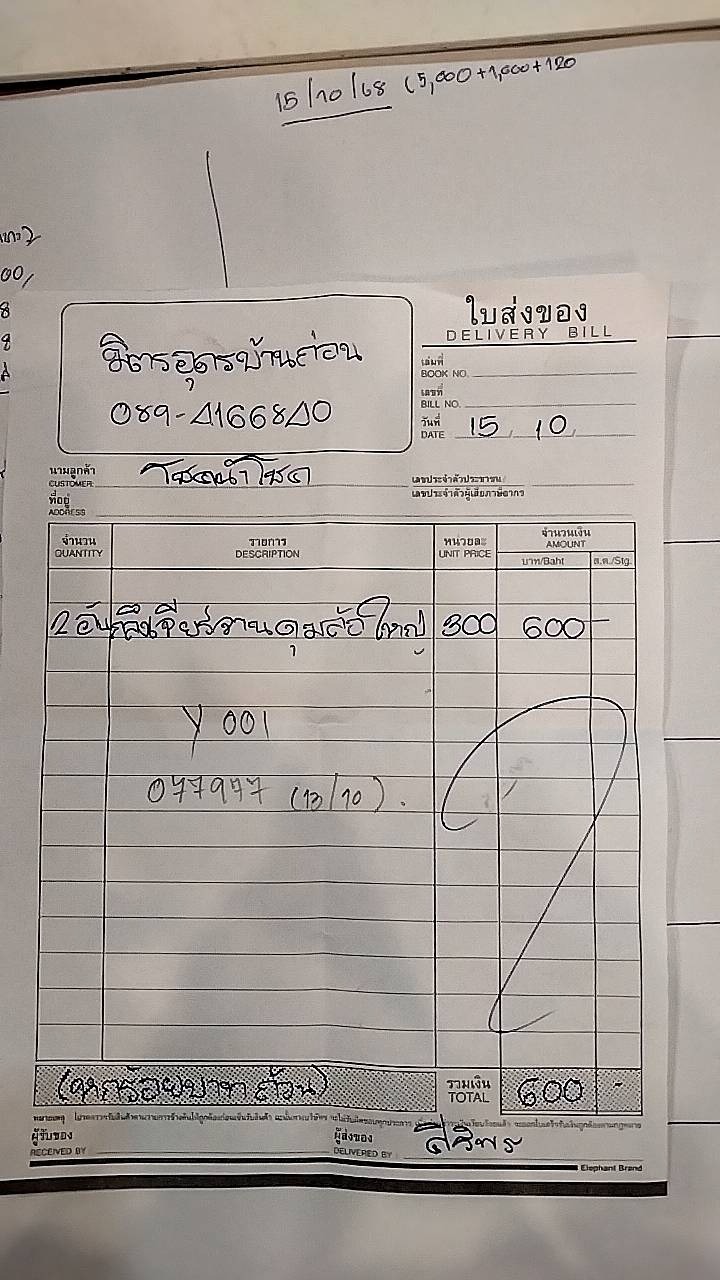 15/10/68 (5,000+1,000+120
00,
8
8
ใบส่งของ
DELIVERY BILL
มิตรอุดรบ้านถ่อน
089-4166840
เล่มที่
BOOK NO.
เลขที่
BILL NO.
วันที่
DATE 15 / 10 /
นามลูกค้า
CUSTOMER โชคนำโชค
ที่อยู่
ADDRESS
เลขประจำตัวประชาชน/
เลขประจำตัวผู้เสียภาษีอากร
จำนวน รายการ หน่วยละ จำนวนเงิน
QUANTITY DESCRIPTION UNIT PRICE AMOUNT
บาท/Baht ส.ต./Stg.
2 อัน กลึงเจียร์จานดุมล้อใหญ่ 300 600 -
Y 001
077977 (13/10).
(หกร้อยบาทถ้วน) รวมเงิน TOTAL 600 -
หมายเหตุ
ผู้รับของ
RECEIVED BY
ผู้ส่งของ
DELIVERED BY
Elephant Brand